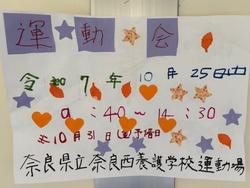 運動会
令和7年10月25日(土)
9:40~14:30
※10月31日(金)予備日
奈良県立奈良西養護学校運動場